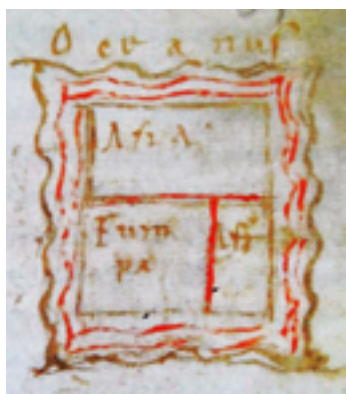 O ce a nuſ
Asia
Euro
pa
Aff